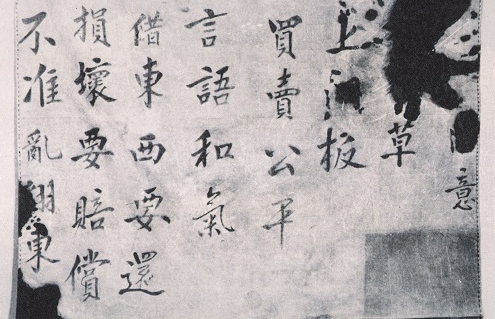 意
草
上門板
買賣公平
言語和氣
借東西要還
損壞要賠償
不准亂翻東